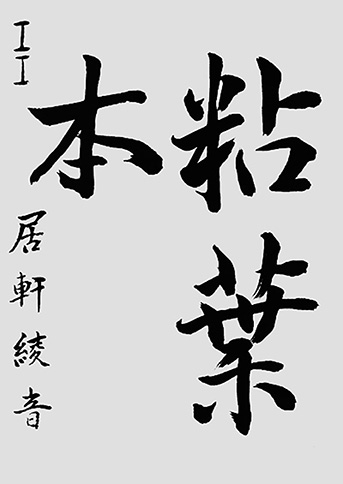 粘葉
本
II
居軒綾音